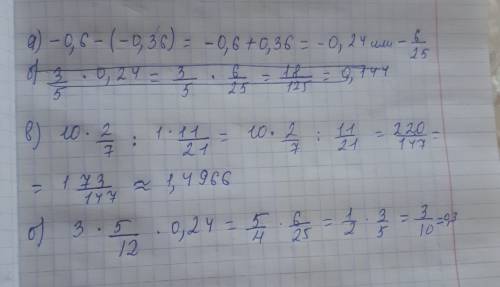 а) -0,6 - (-0,36) = -0,6 + 0,36 = -0,24 или - 6/25
б) 3/5 · 0,24 = 3/5 · 6/25 = 18/125 = 0,144
в) 10 · 2/7 : 1 · 11/21 = 10 · 2/7 : 11/21 = 220/147 =
= 1 73/147 ≈ 1,4966
б) 3 · 5/12 · 0,24 = 5/4 · 6/25 = 1/2 · 3/5 = 3/10 = 0,3